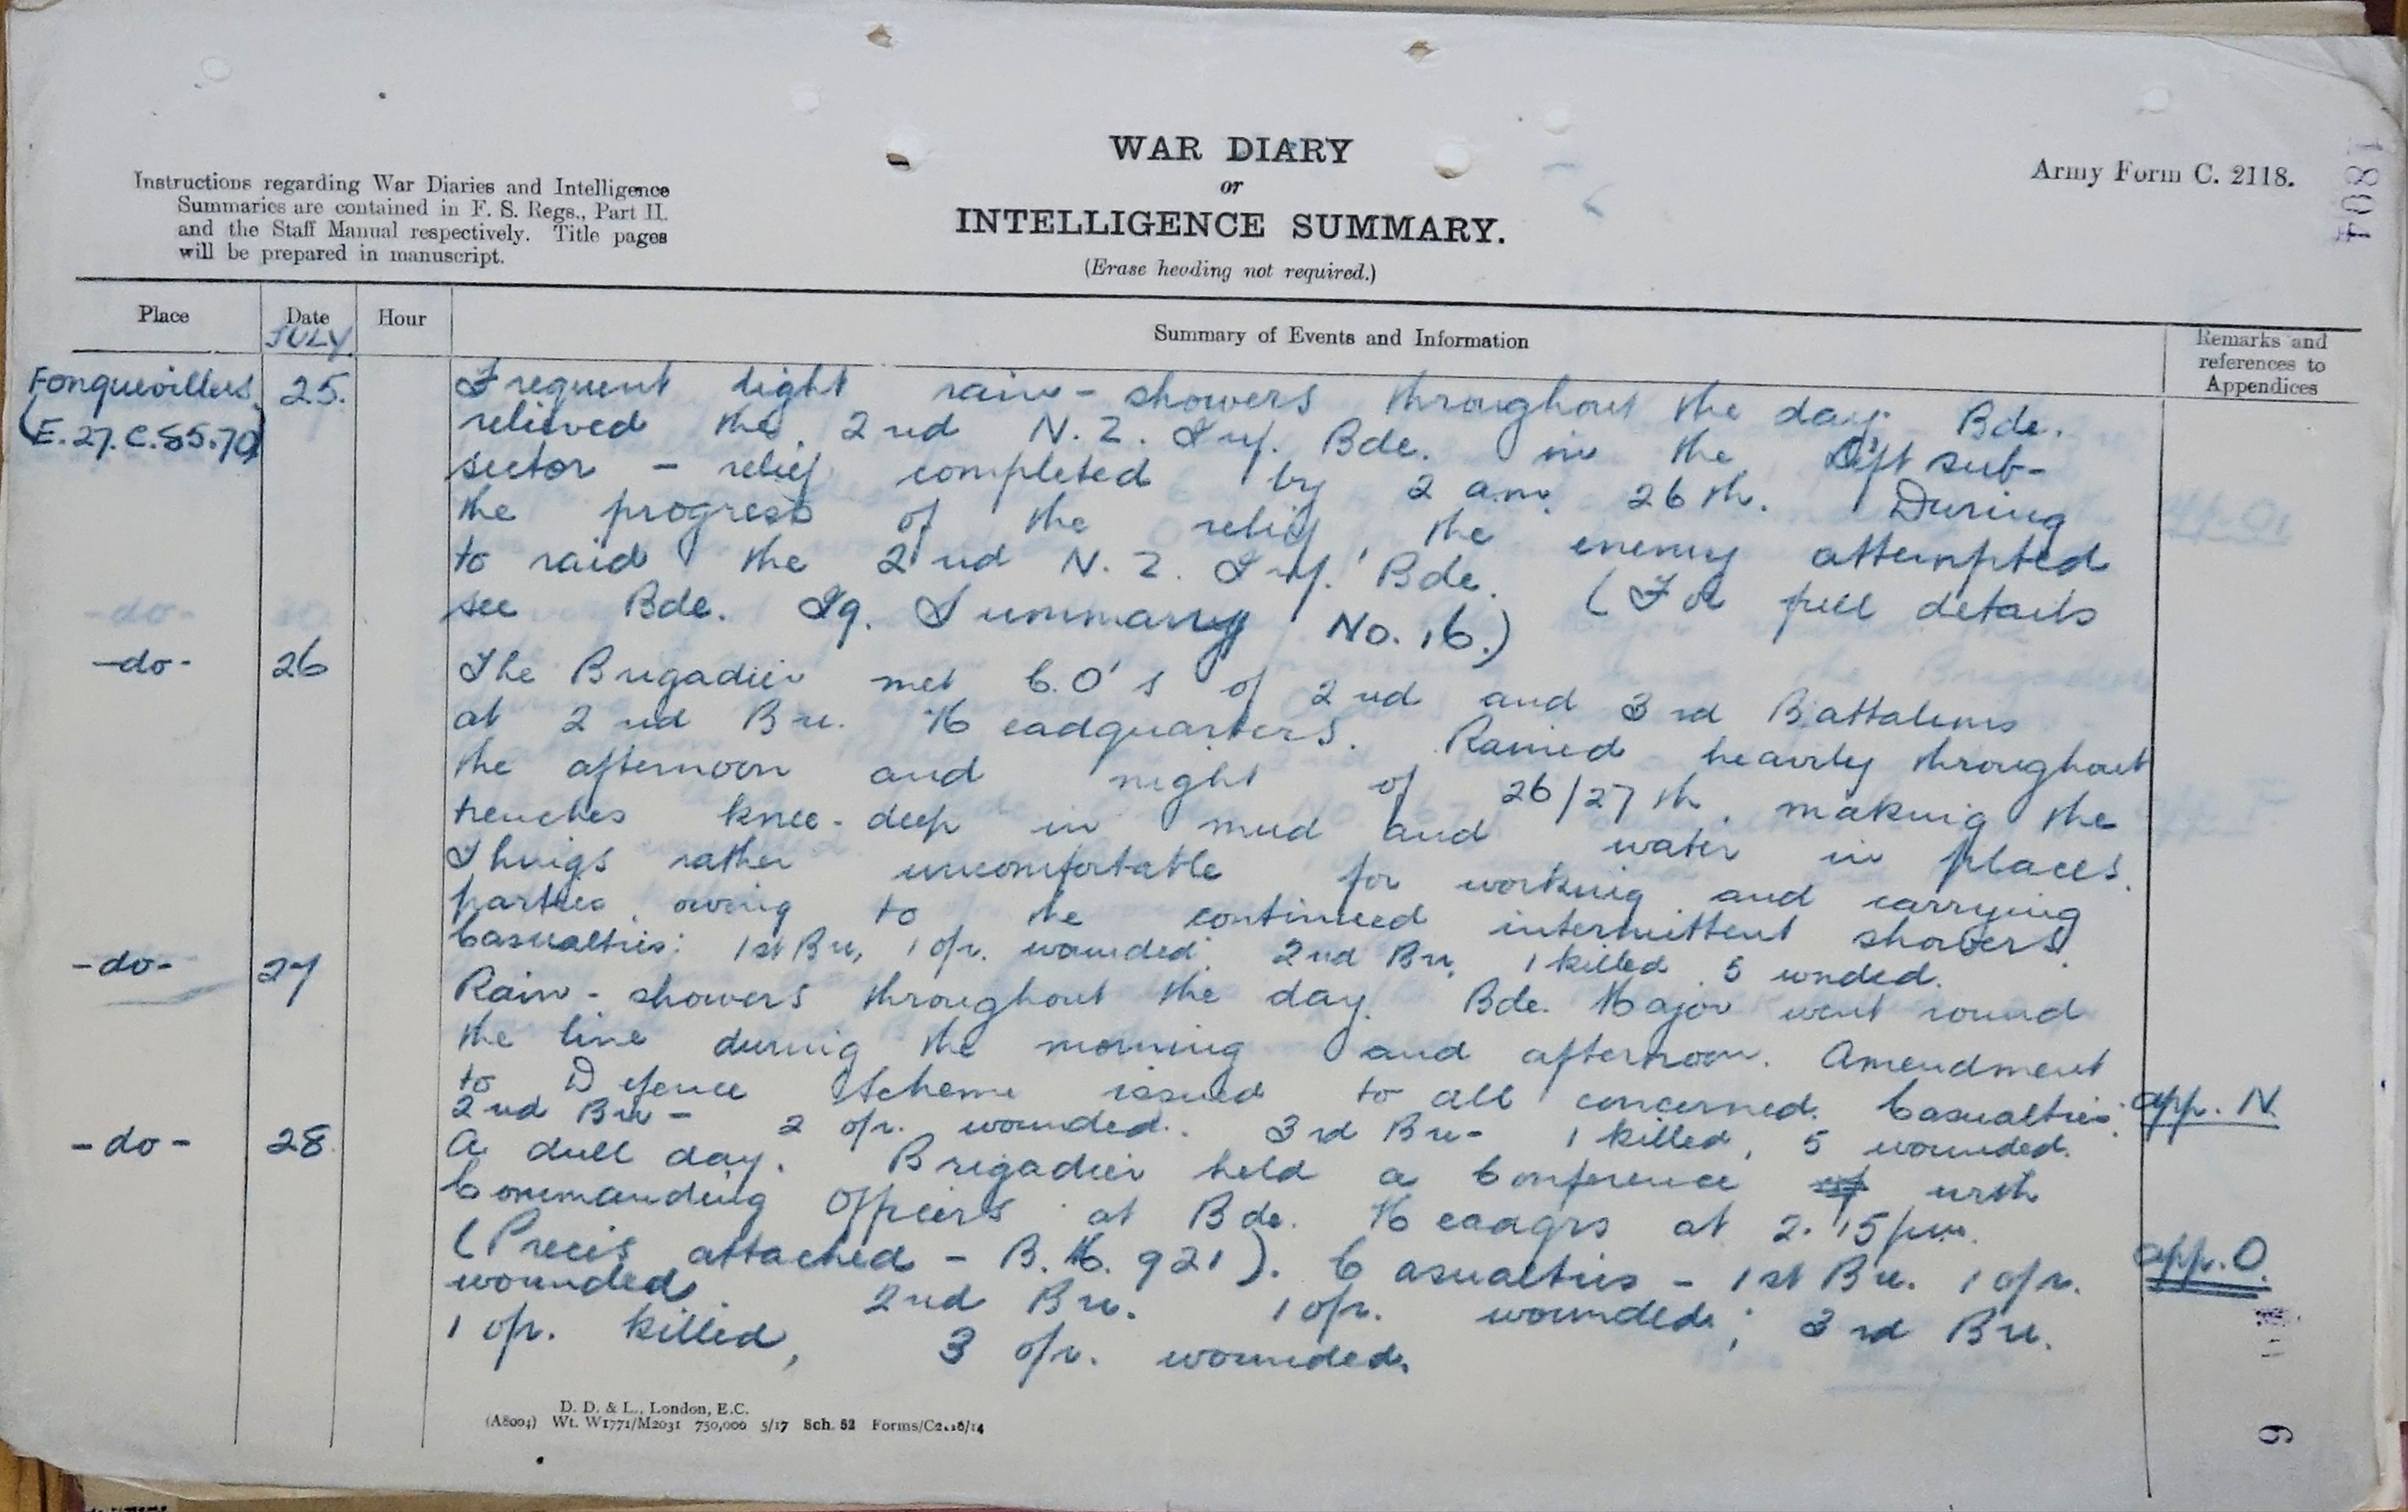 WAR DIARY
or
INTELLIGENCE SUMMARY.
(Erase heading not required.)
Army Form C. 2118.
Instructions regarding War Diaries and Intelligence
Summaries are contained in F. S. Regs., Part II.
and the Staff Manual respectively. Title pages
will be prepared in manuscript.
1804
Place Date Hour Summary of Events and Information Remarks and references to Appendices
JULY
Fonquevillers 25. Frequent light rain-showers throughout the day. Bde.
(E.27.C.85.70) relieved the 2nd N.Z. Inf. Bde. in the left sub-
sector - relief completed by 2 a.m. 26th. During
the progress of the relief, the enemy attempted
to raid the 2nd N.Z. Inf. Bde. (For full details
see Bde. Ig. Summary No. 16.)
-do- 26 The Brigadier met C.O's of 2nd and 3rd Battalions
at 2nd Bn. Headquarters. Rained heavily throughout
the afternoon and night of 26/27th, making the
trenches knee-deep in mud and water in places.
Things rather uncomfortable for working and carrying
parties, owing to the continued intermittent showers.
Casualties: 1st Bn, 1 o/r. wounded. 2nd Bn, 1 killed 5 wnded.
-do- 27 Rain-showers throughout the day. Bde. Major went round
the line during the morning and afternoon. Amendment
to Defence Scheme issued to all concerned. Casualties: app. N.
2nd Bn - 2 o/r. wounded. 3rd Bn - 1 killed, 5 wounded.
-do- 28 A dull day. Brigadier held a Conference of with
Commanding Officers at Bde. Headqrs at 2.15 pm.
(Precis attached - B.M. 921). Casualties - 1st Bn. 1 o/r. app. O.
wounded 2nd Bn. 1 o/r. wounded; 3rd Bn.
1 o/r. killed, 3 o/r. wounded.
D. D. & L., London, E.C.
(A8004) Wt. W1771/M2031 750,000 5/17 Sch. 52 Forms/C2118/14
9